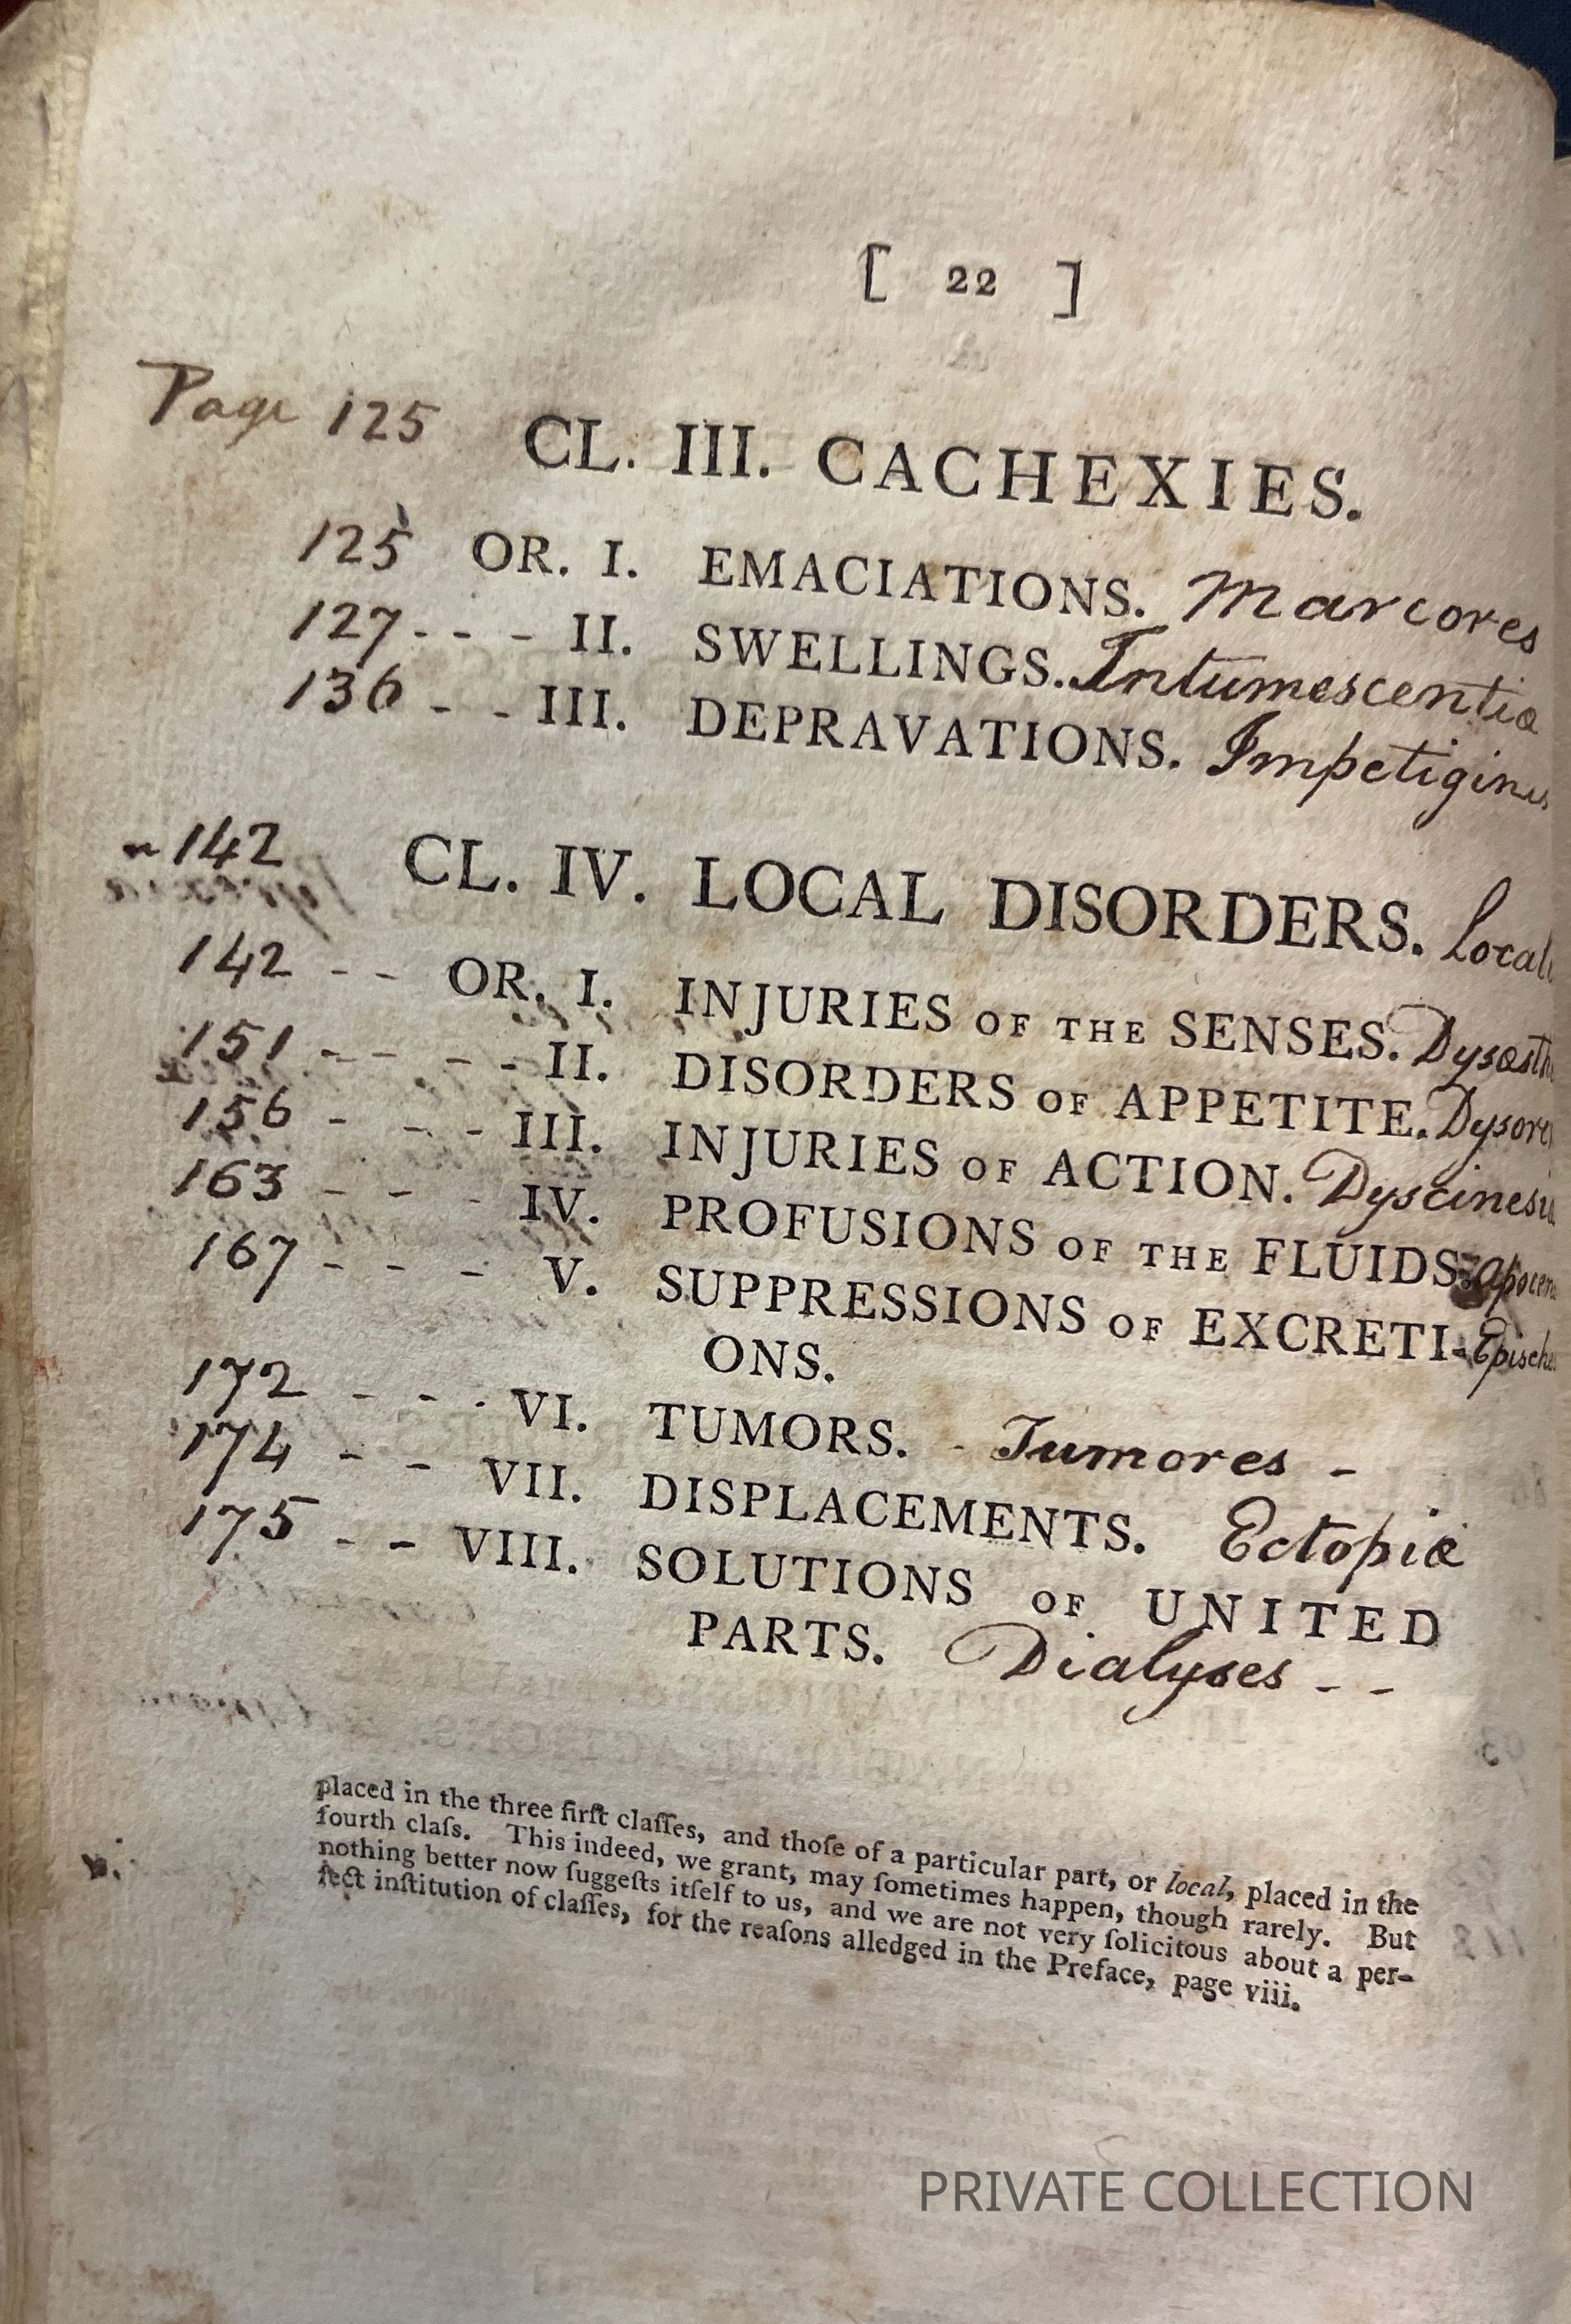 [ 22 ]
Page 125 CL. III. CACHEXIES.
125 OR. I. EMACIATIONS. Marcores
127 - - - II. SWELLINGS. Intumescentiæ
136 - - III. DEPRAVATIONS. Impetigines
142 CL. IV. LOCAL DISORDERS. Local
142 - - OR. I. INJURIES OF THE SENSES. Dysæsth
151 - - - - II. DISORDERS OF APPETITE. Dysore
156 - - - III. INJURIES OF ACTION. Dyscinesi
163 - - - IV. PROFUSIONS OF THE FLUIDS. Apocen
167 - - - V. SUPPRESSIONS OF EXCRETI- Epische
ONS.
172 - - - VI. TUMORS. - Tumores -
174 - - VII. DISPLACEMENTS. Ectopiæ
175 - - VIII. SOLUTIONS OF UNITED
PARTS. Dialyses - -
placed in the three firſt claſſes, and thoſe of a particular part, or local, placed in the
fourth claſs. This indeed, we grant, may ſometimes happen, though rarely. But
nothing better now ſuggeſts itſelf to us, and we are not very ſolicitous about a per-
fect inſtitution of claſſes, for the reaſons alledged in the Preface, page viii.
PRIVATE COLLECTION